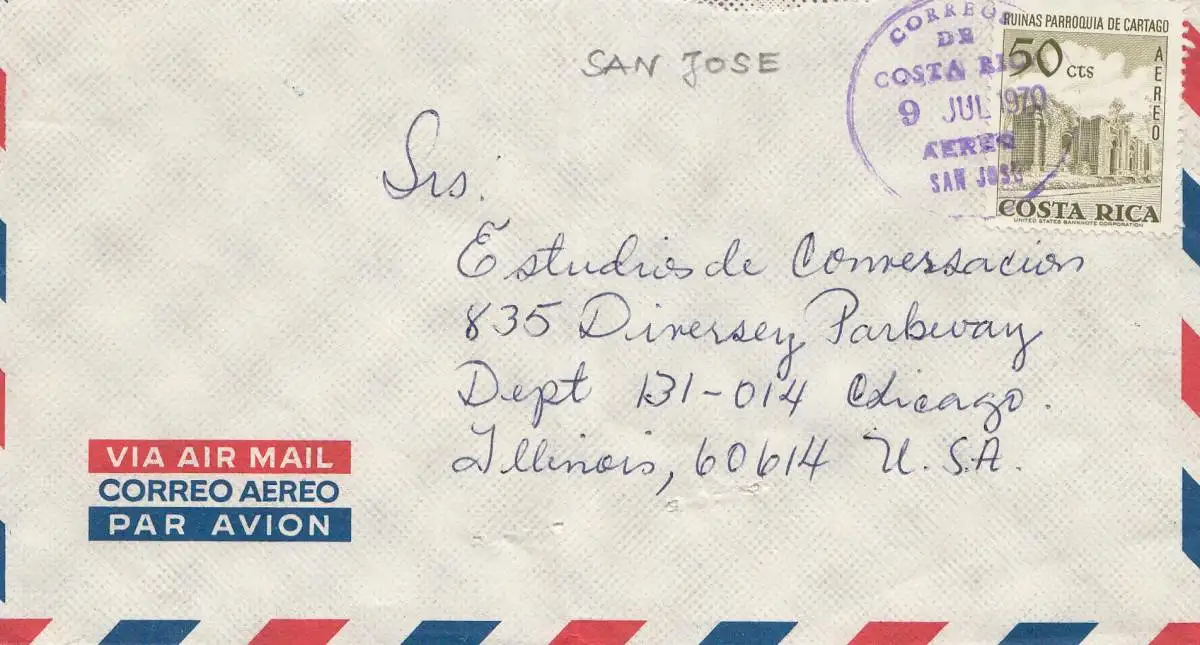 SAN JOSE
CORREOS
DE
COSTA RICA
9 JUL 1970
AEREO
SAN JOSE
RUINAS PARROQUIA DE CARTAGO
50 cts
AEREO
COSTA RICA
UNITED STATES BANKNOTE CORPORATION
Srs.
Estudios de Conversacion
835 Diversey Parkway
Dept 131-014 Chicago.
Illinois, 60614 U.S.A.
VIA AIR MAIL
CORREO AEREO
PAR AVION